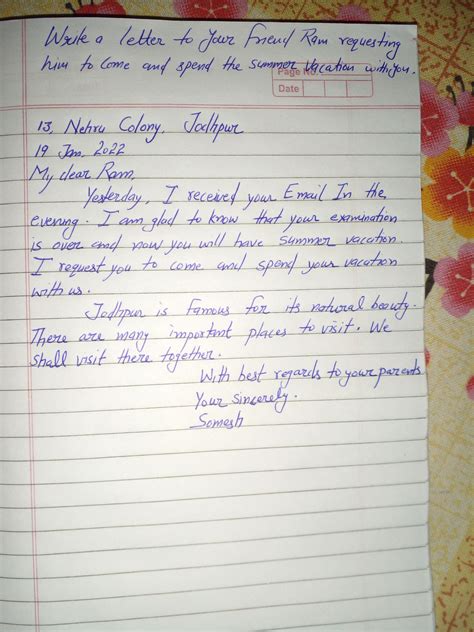 Write a letter to your friend Ram requesting
him to come and spend the summer vacation with you.
Page No.
Date
13, Nehru Colony, Jodhpur
19 Jan. 2022
My dear Ram,
Yesterday, I received your Email In the
evening. I am glad to know that your examination
is over and now you will have summer vacation.
I request you to come and spend your vacation
with us.
Jodhpur is famous for its natural beauty.
There are many important places to visit. We
shall visit there together.
With best regards to your parents
Your sincerely.
Somesh